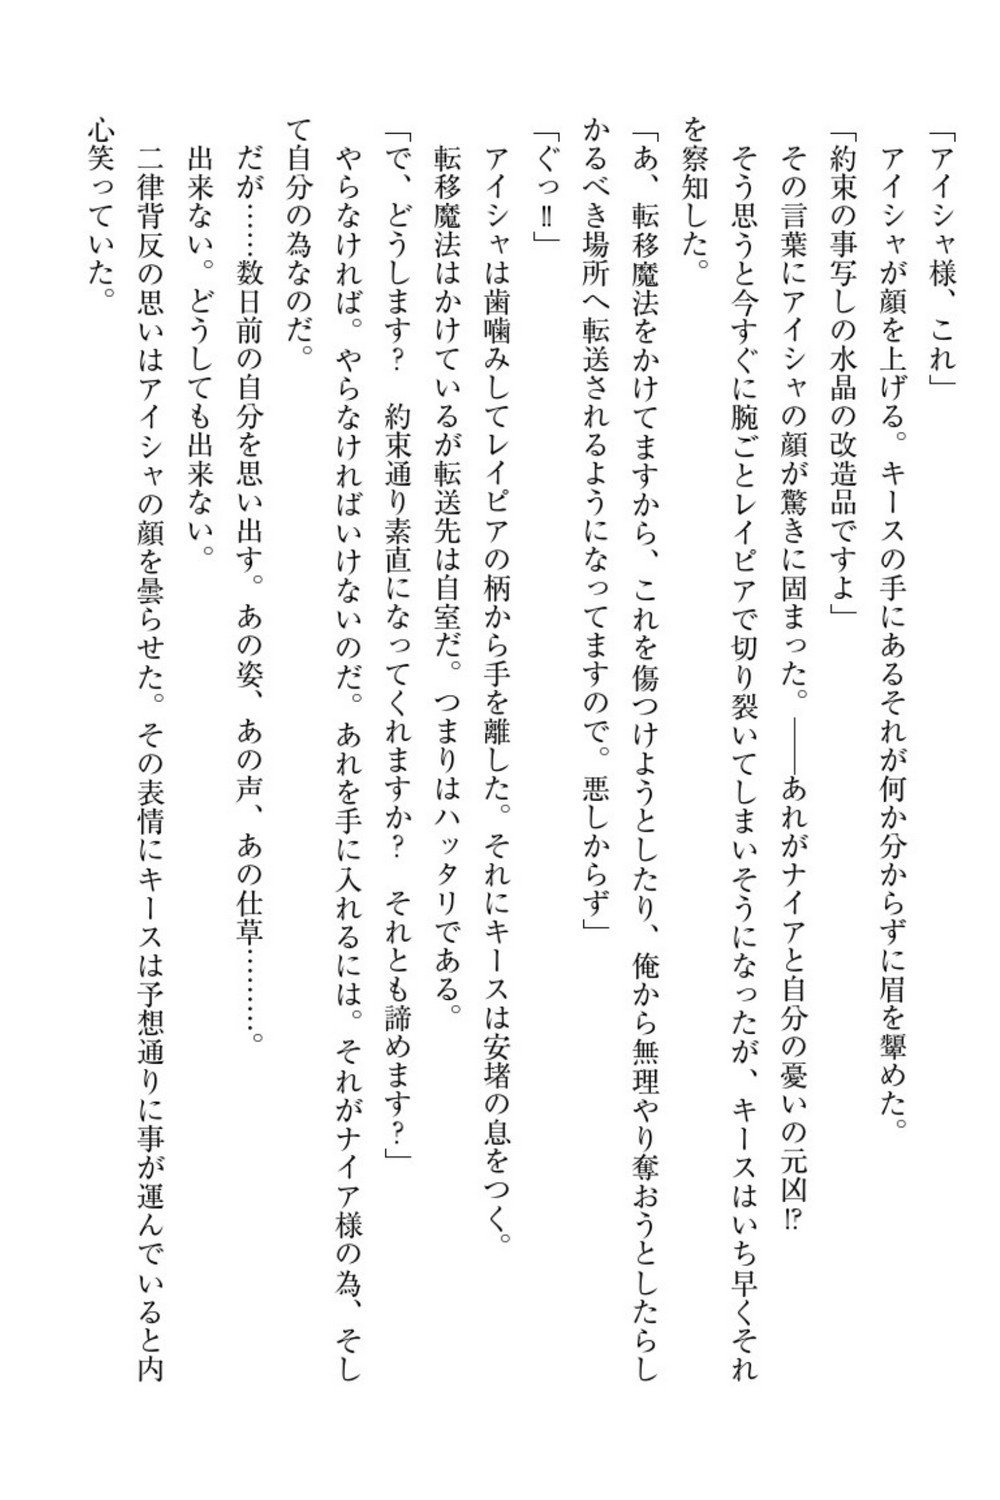 「アイシャ様、これ」
　アイシャが顔を上げる。キースの手にあるそれが何か分からずに眉を顰めた。
「約束の事写しの水晶の改造品ですよ」
　その言葉にアイシャの顔が驚きに固まった。――あれがナイアと自分の憂いの元凶⁉
　そう思うと今すぐに腕ごとレイピアで切り裂いてしまいそうになったが、キースはいち早くそれ
を察知した。
「あ、転移魔法をかけてますから、これを傷つけようとしたり、俺から無理やり奪おうとしたらし
かるべき場所へ転送されるようになってますので。悪しからず」
「ぐっ‼」
　アイシャは歯噛みしてレイピアの柄から手を離した。それにキースは安堵の息をつく。
　転移魔法はかけているが転送先は自室だ。つまりはハッタリである。
「で、どうします？　約束通り素直になってくれますか？　それとも諦めます？」
　やらなければ。やらなければいけないのだ。あれを手に入れるには。それがナイア様の為、そし
て自分の為なのだ。
　だが……数日前の自分を思い出す。あの姿、あの声、あの仕草………。
　出来ない。どうしても出来ない。
　二律背反の思いはアイシャの顔を曇らせた。その表情にキースは予想通りに事が運んでいると内
心笑っていた。